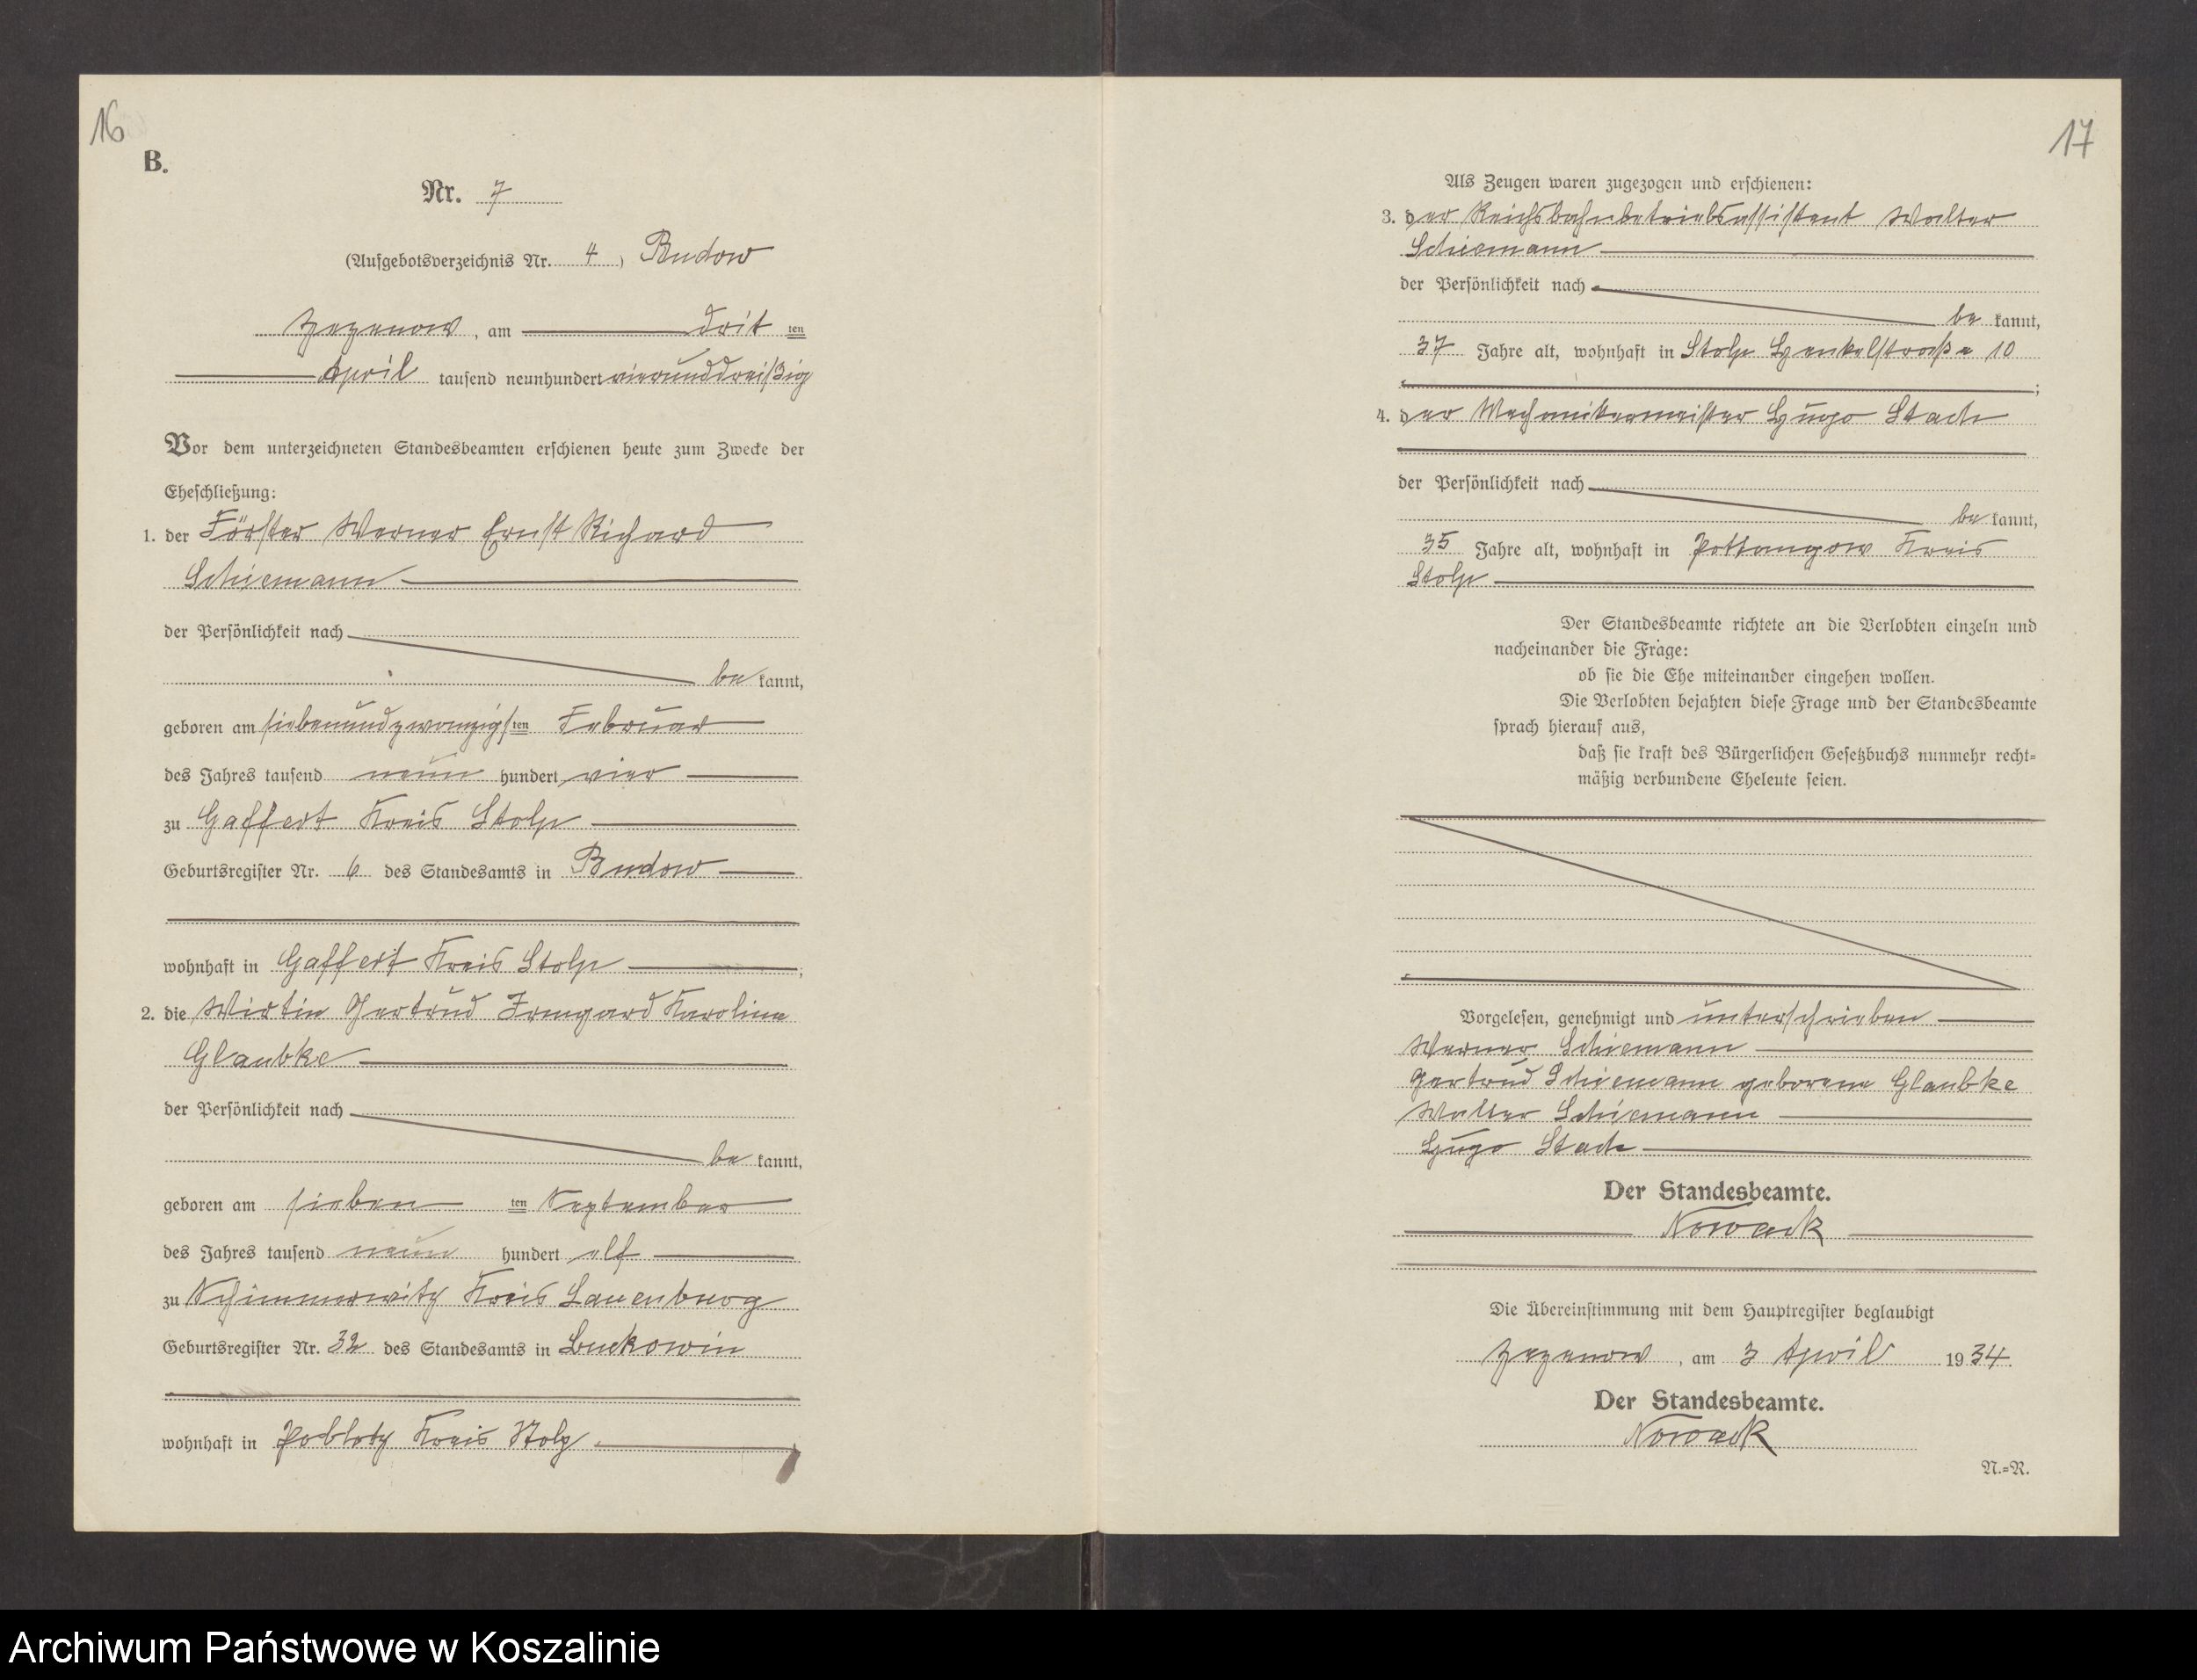 16
B.
Nr. 7
(Aufgebotsverzeichnis Nr. 4) Budow
Zezenow, am dritten
April tausend neunhundert vierunddreißig
Vor dem unterzeichneten Standesbeamten erschienen heute zum Zwecke der
Eheschließung:
1. der Förster Werner Ernst Richard
Schiemann
der Persönlichkeit nach
bekannt,
geboren am siebenundzwanzigsten Februar
des Jahres tausend neun hundert vier
zu Gaffert Kreis Stolp
Geburtsregister Nr. 6 des Standesamts in Budow
wohnhaft in Gaffert Kreis Stolp;
2. die Wirtin Gertrud Irmgard Karoline
Glaubke
der Persönlichkeit nach
bekannt,
geboren am siebenten September
des Jahres tausend neun hundert elf
zu Schimmerwitz Kreis Lauenburg
Geburtsregister Nr. 32 des Standesamts in Buckowin
wohnhaft in Poblotz Kreis Stolp
17
Als Zeugen waren zugezogen und erschienen:
3. der Reichsbahnbetriebsassistent Walter
Schiemann
der Persönlichkeit nach
bekannt,
37 Jahre alt, wohnhaft in Stolp Henkelstraße 10
;
4. der Mechanikermeister Hugo Stach
der Persönlichkeit nach
bekannt,
35 Jahre alt, wohnhaft in Pottangow Kreis
Stolp
Der Standesbeamte richtete an die Verlobten einzeln und
nacheinander die Frage:
ob sie die Ehe miteinander eingehen wollen.
Die Verlobten bejahten diese Frage und der Standesbeamte
sprach hierauf aus,
daß sie kraft des Bürgerlichen Gesetzbuchs nunmehr recht-
mäßig verbundene Eheleute seien.
Vorgelesen, genehmigt und unterschrieben
Werner Schiemann
Gertrud Schiemann geborene Glaubke
Walter Schiemann
Hugo Stach
Der Standesbeamte.
Nowack
Die Übereinstimmung mit dem Hauptregister beglaubigt
Zezenow, am 3 April 1934.
Der Standesbeamte.
Nowack
N.-R.
Archiwum Państwowe w Koszalinie